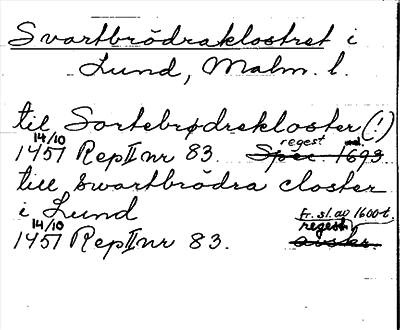 Svartbrödraklostret i
Lund, Malm. l.
til Sortebrødrekloster (!)
14/10 1457 Rep II nr 83. regest
till swartbrödra closter
i Lund
fr. sl. av 1600-t.
14/10 1457 Rep II nr 83. regest